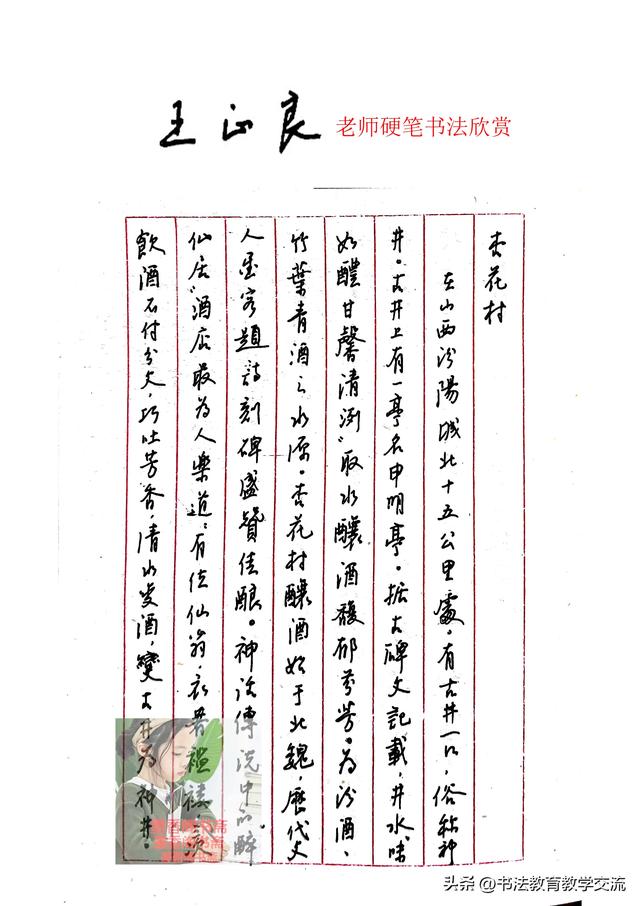 王正良 老师硬笔书法欣赏
杏花村
在山西汾陽城北十五公里處，有古井一口，俗称神
井。古井上有一亭名申明亭。据古碑文記載，井水“味
如醴甘馨清洌”取水釀酒馥郁芬芳。为汾酒、
竹葉青酒之水源。杏花村釀酒始于北魏，歷代文
人墨客題詩刻碑盛贊佳釀。神话傳说中的“醉
仙居”酒店最为人樂道：有位仙翁，衣著褴褛，一次
飲酒不付分文，巧吐芳香，清水变酒，變古井为神井。
头条 @书法教育教学交流